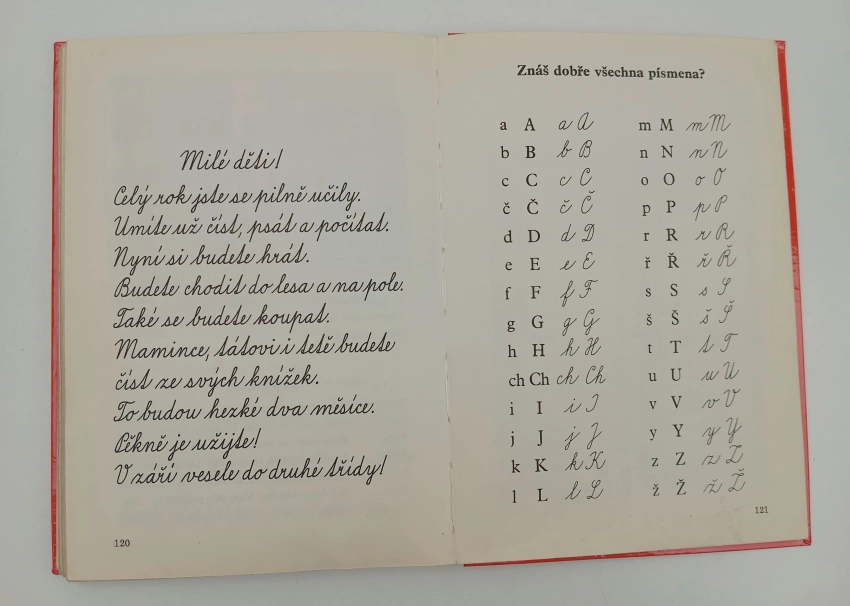 Milé děti!
Celý rok jste se pilně učily.
Umíte už číst, psát a počítat.
Nyní si budete hrát.
Budete chodit do lesa a na pole.
Také se budete koupat.
Mamince, tátovi i tetě budete
číst ze svých knížek.
To budou hezké dva měsíce.
Pěkně je užijte!
V září vesele do druhé třídy!
120
Znáš dobře všechna písmena?
a A a A
b B b B
c C c C
č Č č Č
d D d D
e E e E
f F f F
g G g G
h H h H
ch Ch ch Ch
i I i I
j J j J
k K k K
l L l L
m M m M
n N n N
o O o O
p P p P
r R r R
ř Ř ř Ř
s S s S
š Š š Š
t T t T
u U u U
v V v V
y Y y Y
z Z z Z
ž Ž ž Ž
121